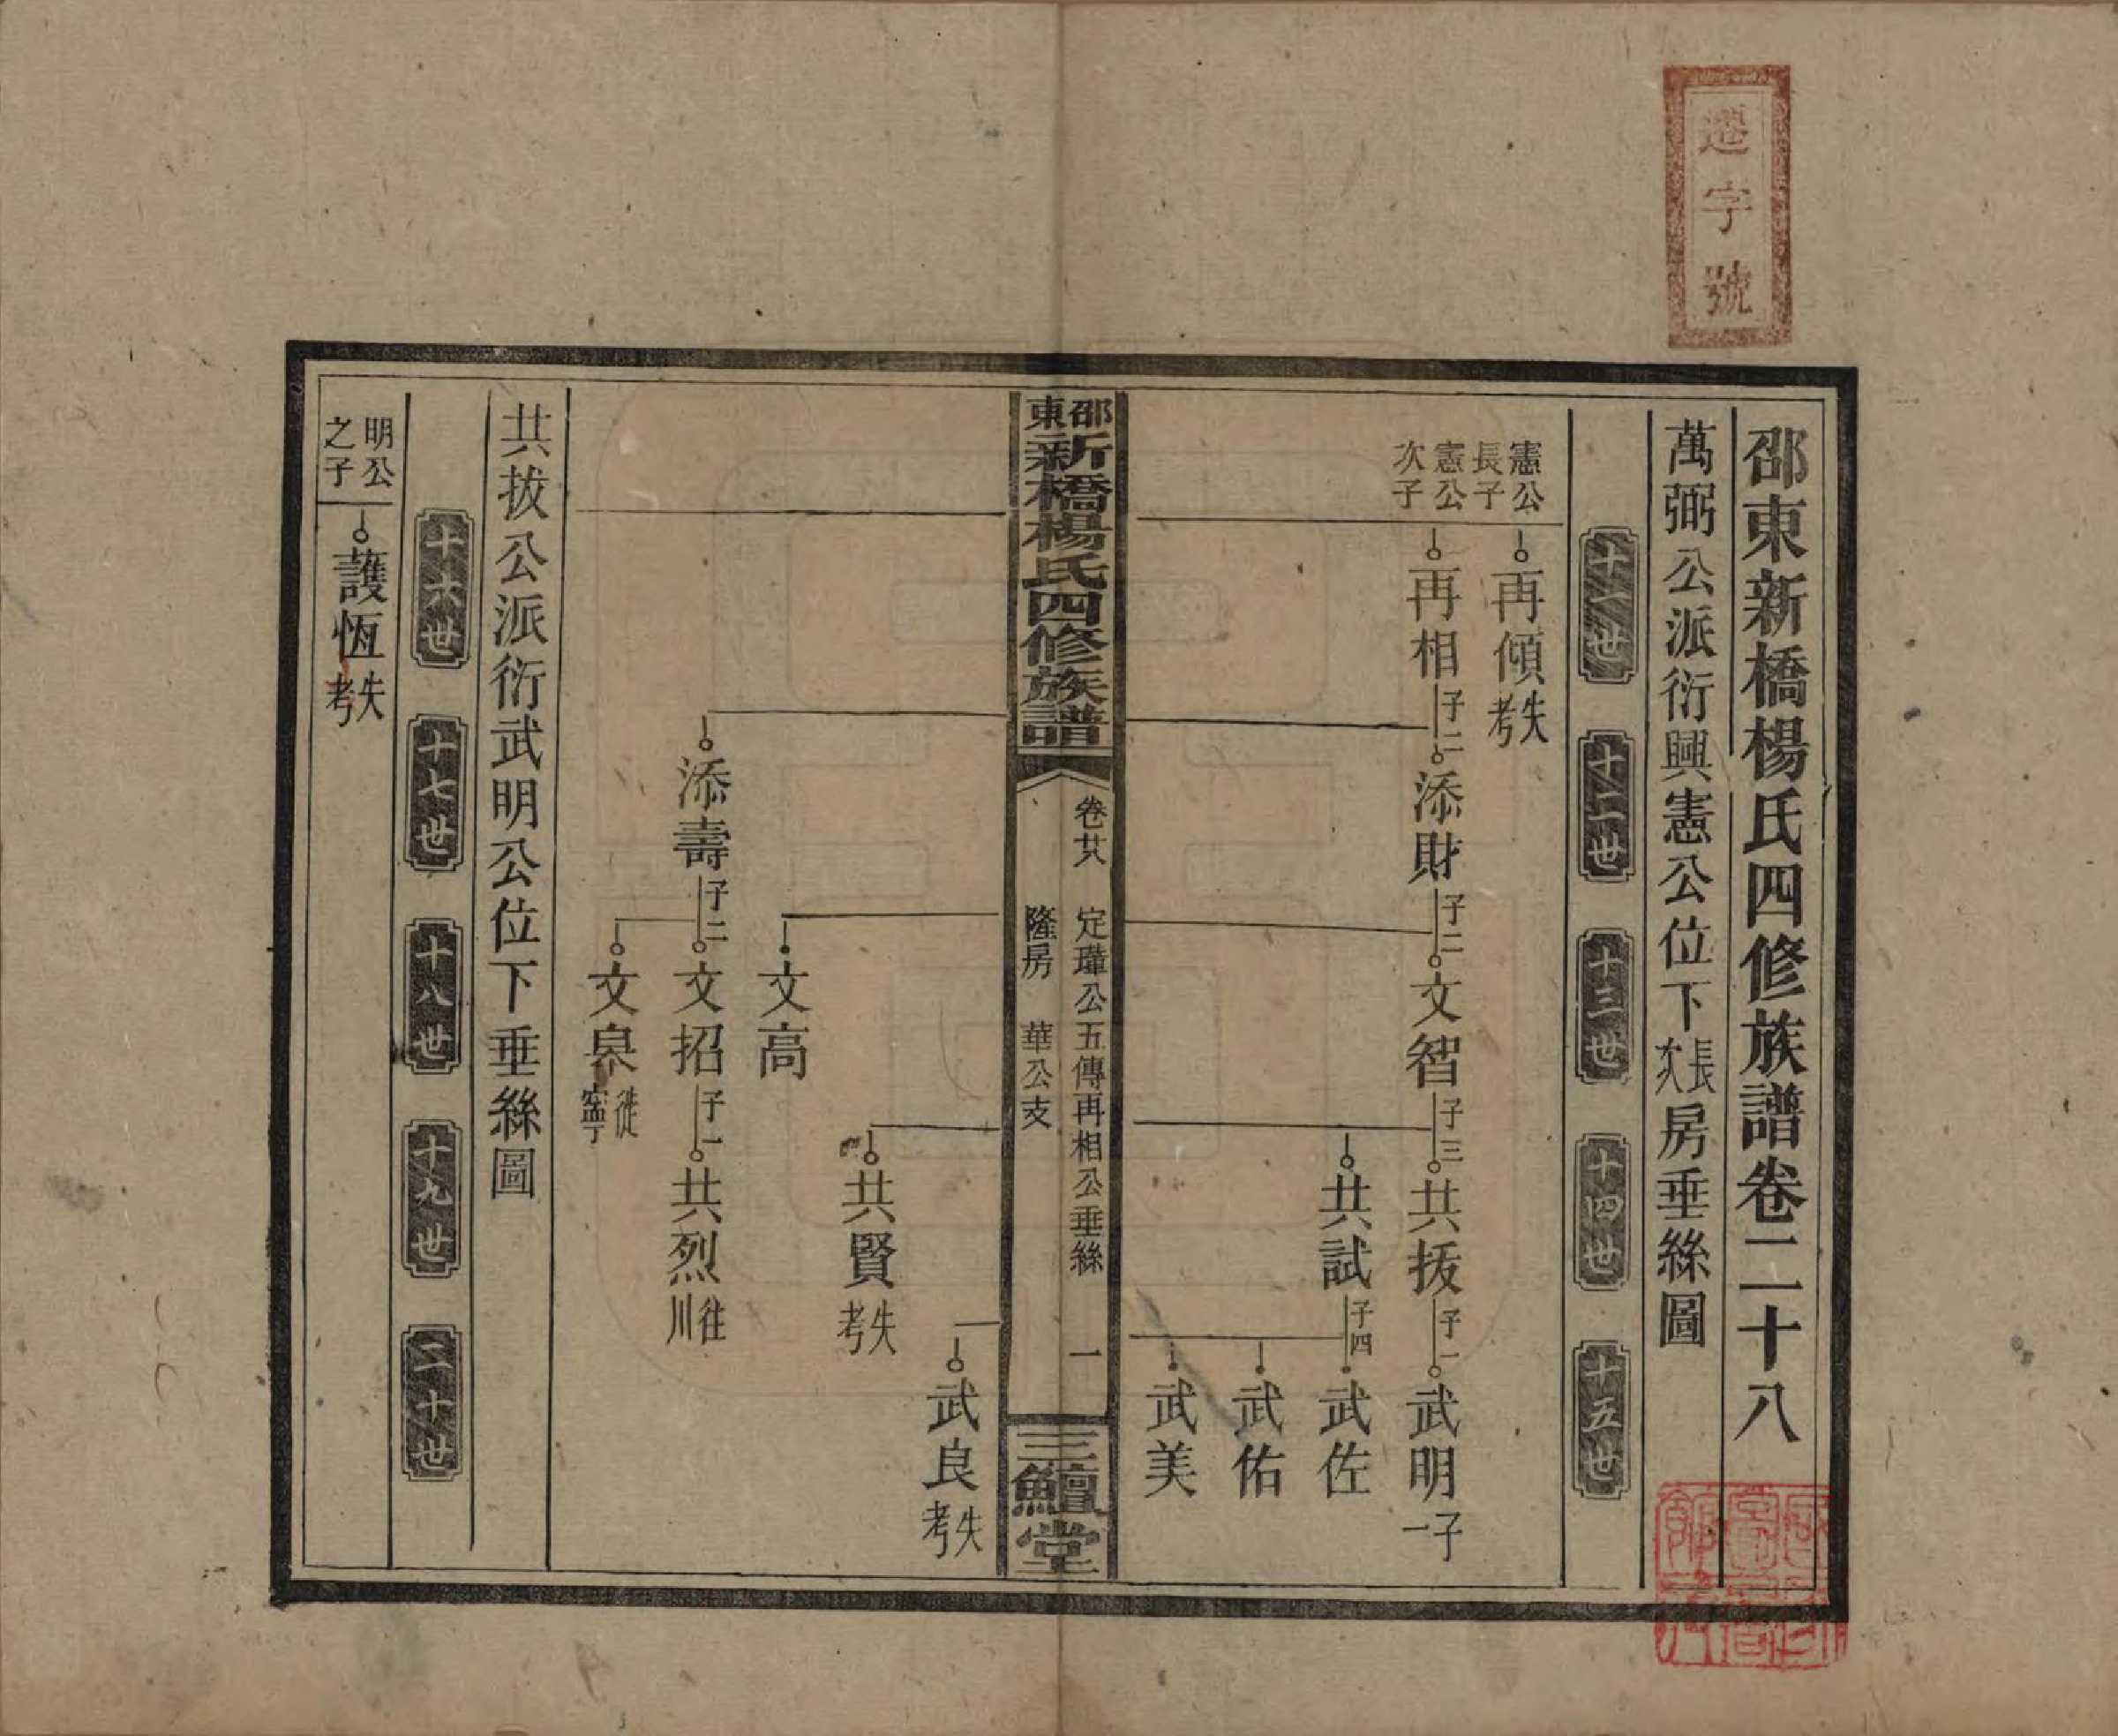 遷字號
邵東新橋楊氏四修族譜卷二十八
萬弼公派衍興憲公位下長次房垂絲圖
十一世 十二世 十三世 十四世 十五世
憲公長子 再傾 失考
憲公次子 再相 子二 添財 子二 文智 子三 共拔 子一 武明 子一
共試 子四 武佐
武佑
武美
邵東新橋楊氏四修族譜 卷廿八 定璍公五傳再相公垂絲 隆房 華公支 一 三鱣堂
武良 失考
共賢 失考
文高
添壽 子二 文招 子一 共烈 往川
文皋 徙寧
共拔公派衍武明公位下垂絲圖
十六世 十七世 十八世 十九世 二十世
明公之子 護恆 失考